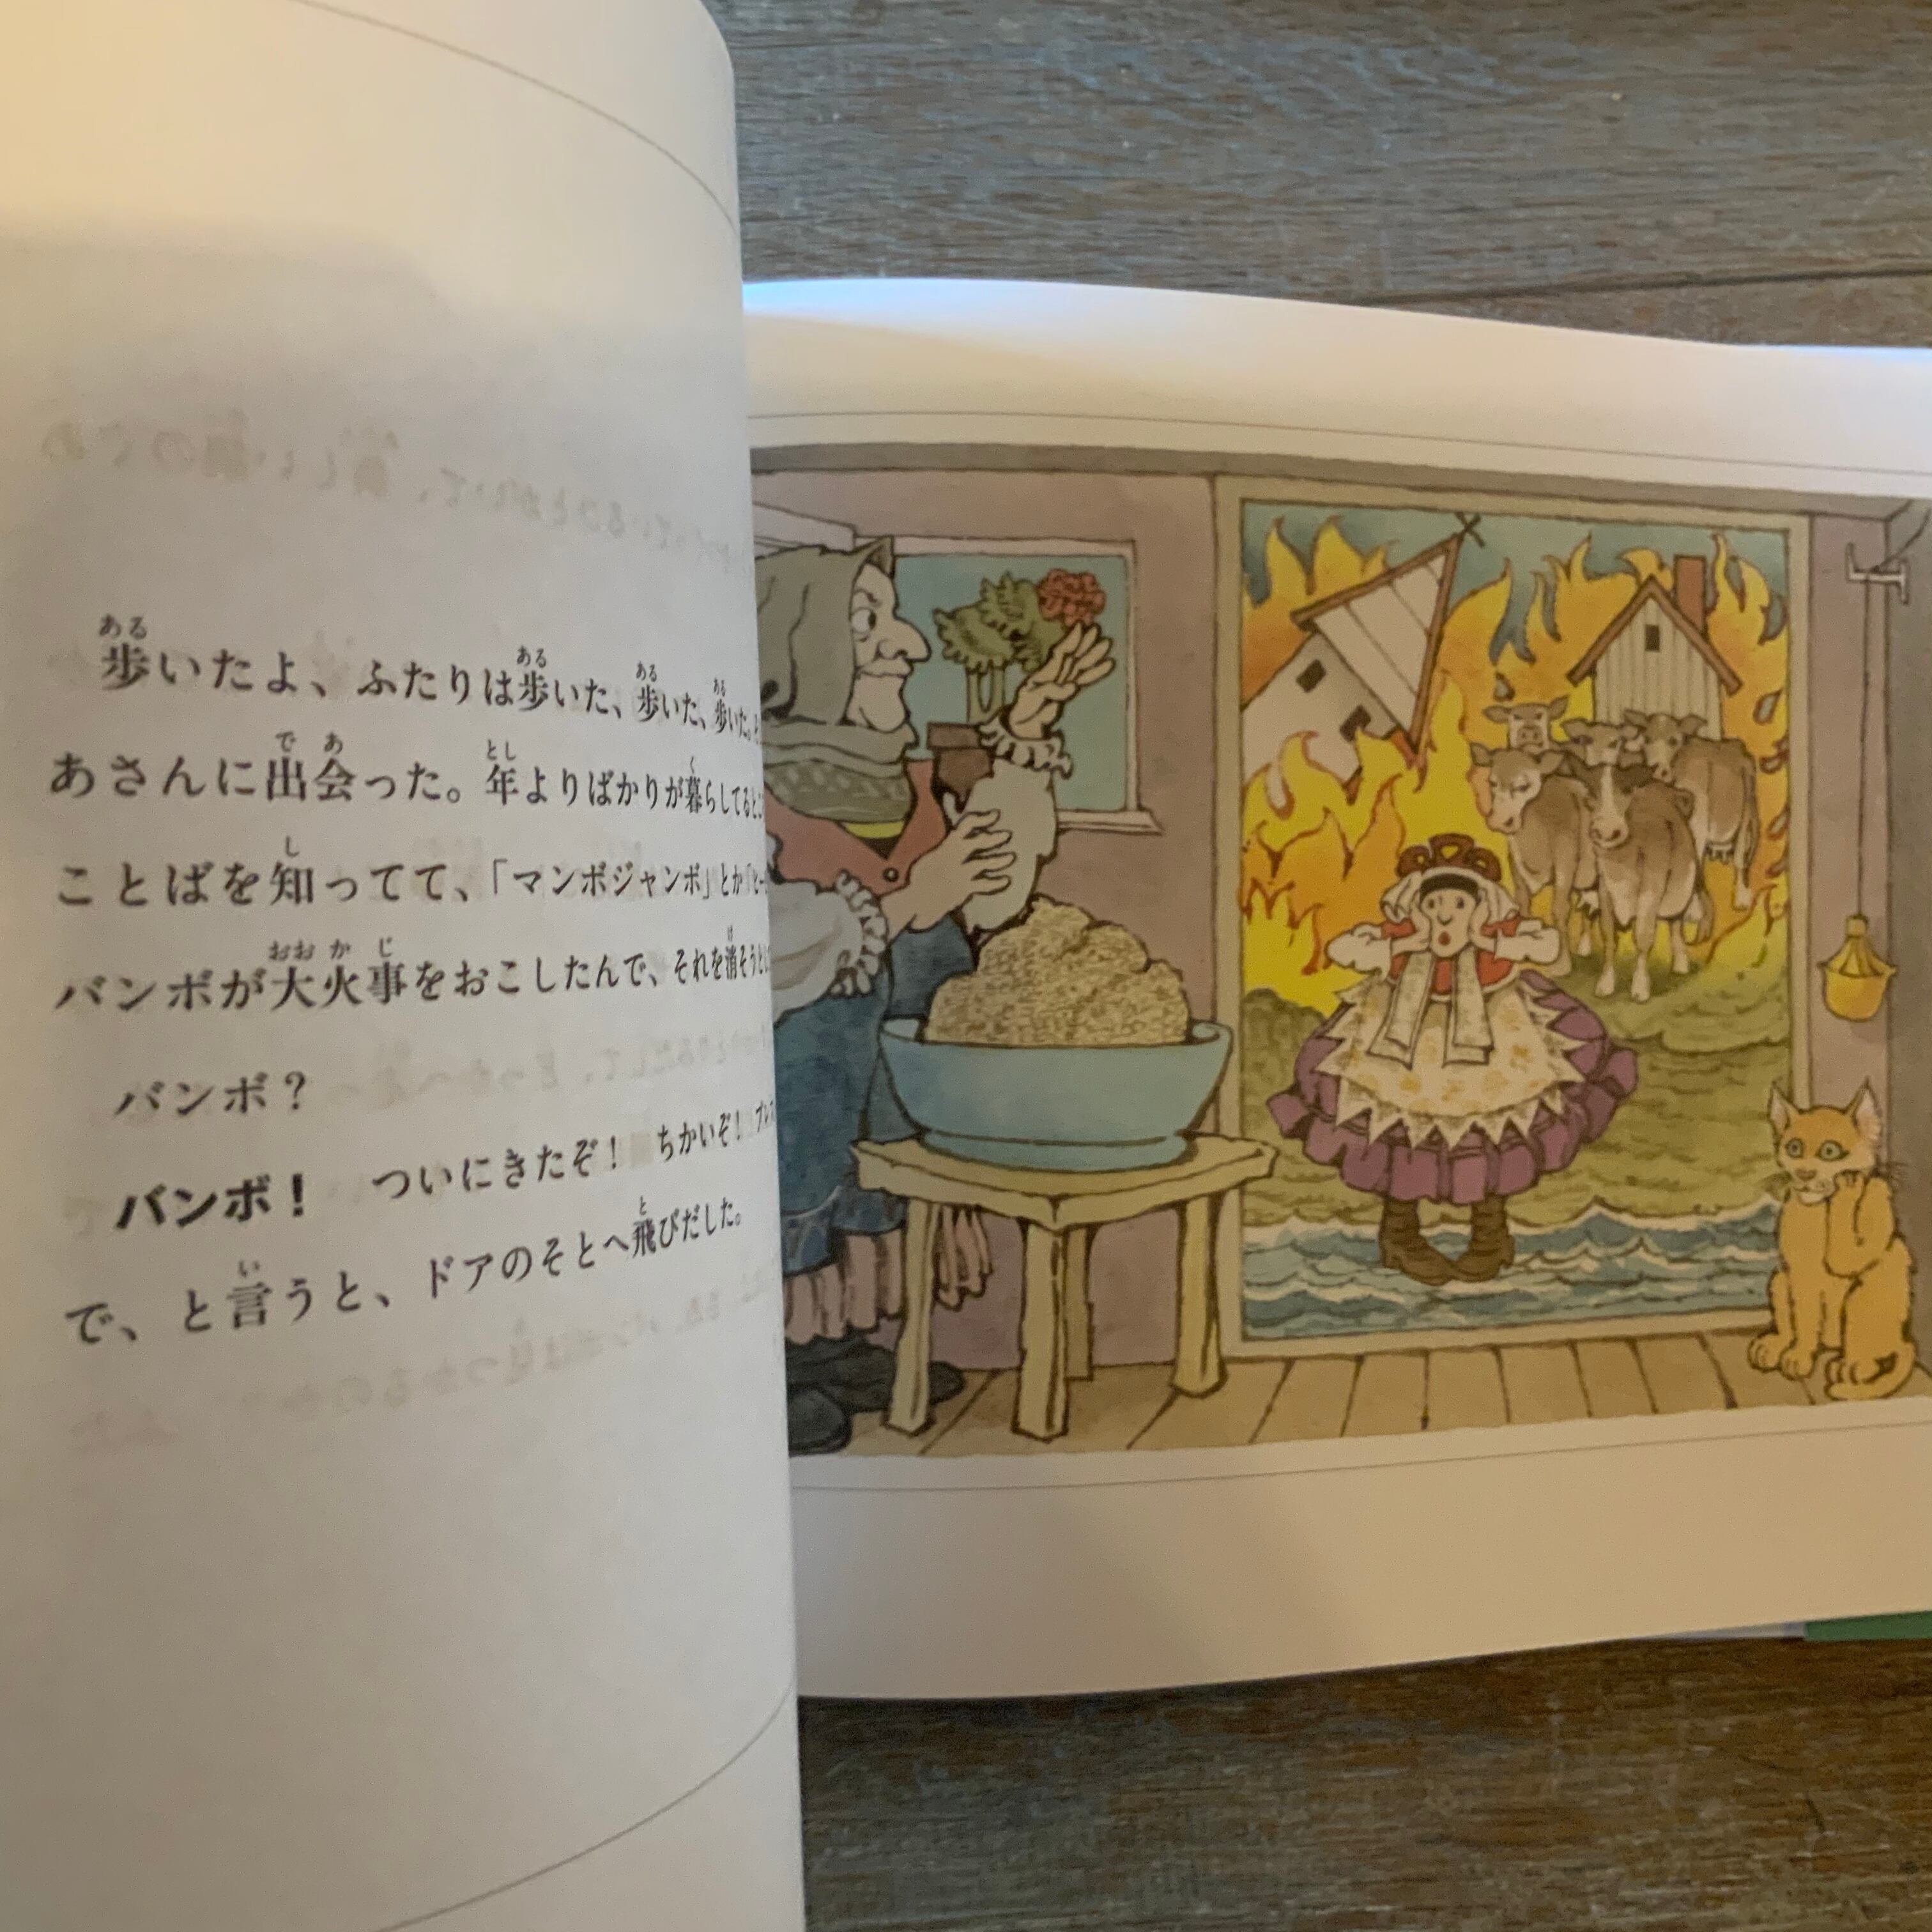 歩いたよ、ふたりは歩いた、歩いた、歩いた。
あさんに出会った。年よりばかりが暮らしてると
ことばを知ってて、「マンボジャンボ」とか「ヒー
バンボが大火事をおこしたんで、それを消そうとし
バンボ？
バンボ！　ついにきたぞ！　ちかいぞ！
で、と言うと、ドアのそとへ飛びだした。